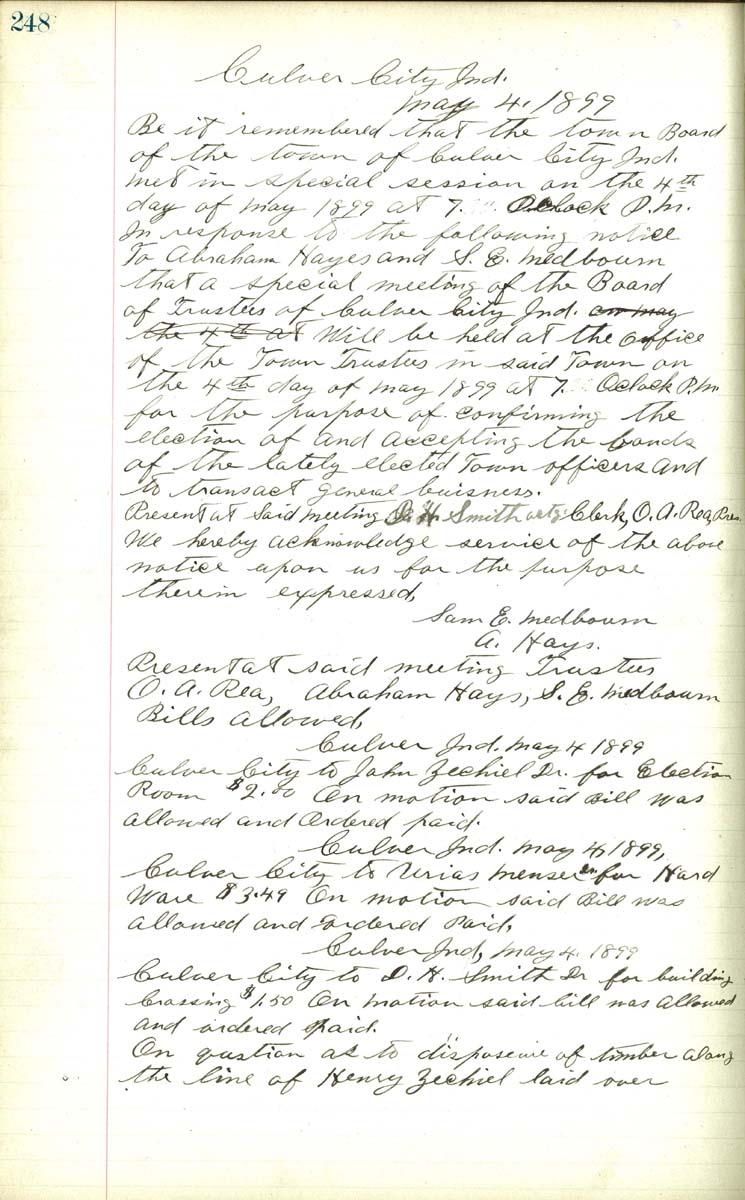 248
Culver City Ind.
May 4, 1899
Be it remembered that the town Board
of the town of Culver City Ind.
met in special session on the 4th
day of May 1899 at 7. Oclock P.M.
In response to the following notice
To Abraham Hayes and S. E. Medbourn
that a special meeting of the Board
of Trustees of Culver City Ind. on may
the 4th at Will be held at the office
of the Town Trustees in said Town on
the 4th day of May 1899 at 7. Oclock P.M.
for the purpose of confirming the
election of and accepting the bonds
of the lately elected Town officers and
to transact general buisness.
Present at Said meeting D. H. Smith Clerk, O. A. Rea, Pres.
We hereby acknowledge service of the above
notice upon us for the purpose
therein expressed,
Sam E. Medbourn
A. Hays.
Present at said meeting Trustees
O. A. Rea, Abraham Hays, S. E. Medbourn
Bills allowed,
Culver Ind. May 4 1899
Culver City to John Zechiel Dr. for Election
Room $2.00 On motion said Bill was
allowed and Ordered paid.
Culver Ind. May 4, 1899,
Culver City to Urias Menser for Hard
Ware $3.49 On motion said Bill was
allowed and ordered Paid,
Culver Ind, May 4. 1899
Culver City to D. H. Smith Dr for building
Crossing $1.50 On motion said bill was allowed
and ordered paid.
On qustion as to of timber along
the line of Henry Zechiel laid over